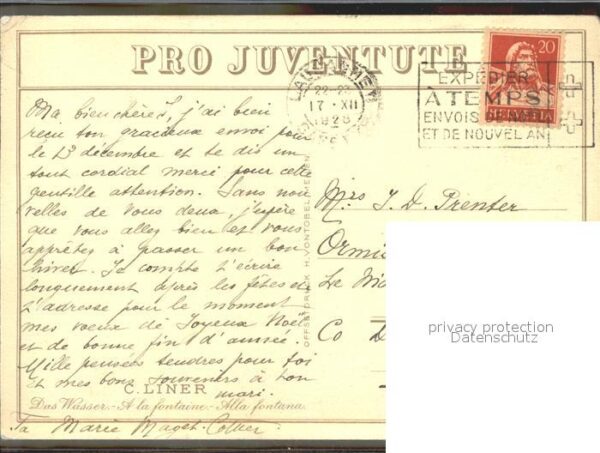 PRO JUVENTUTE
LAUSANNE
22-23
17·XII
1928
EXPEDIER
À TEMPS
ENVOIS DE NOEL
ET DE NOUVEL AN
20
HELVETIA
Ma bien chère, j'ai bien
reçu ton gracieux envoi pour
le 13 décembre et te dis un
tout cordial merci pour cette
gentille attention. Sans nou
velles de vous deux, j'espère
que vous allez bien et vous
apprêtez à passer un bon
hiver. Je compte t'écrire
longuement après les fêtes et
t'adresse pour le moment
mes voeux de Joyeux Noël
et de bonne fin d'année.
Mille pensées tendres pour toi
et mes bons souvenirs à ton
mari.
C. LINER
Das Wasser.-A la fontaine.-Alla fontana.
Ta Marie
OFFSETDRUCK H. VONTOBEL, MEILEN
Mrs J. D. Prenter
Ormi
Le
Co D
privacy protection
Datenschutz